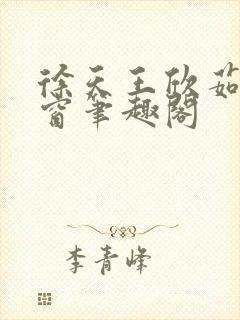 徐天王欣茹
窗笔趣阁
李青峰